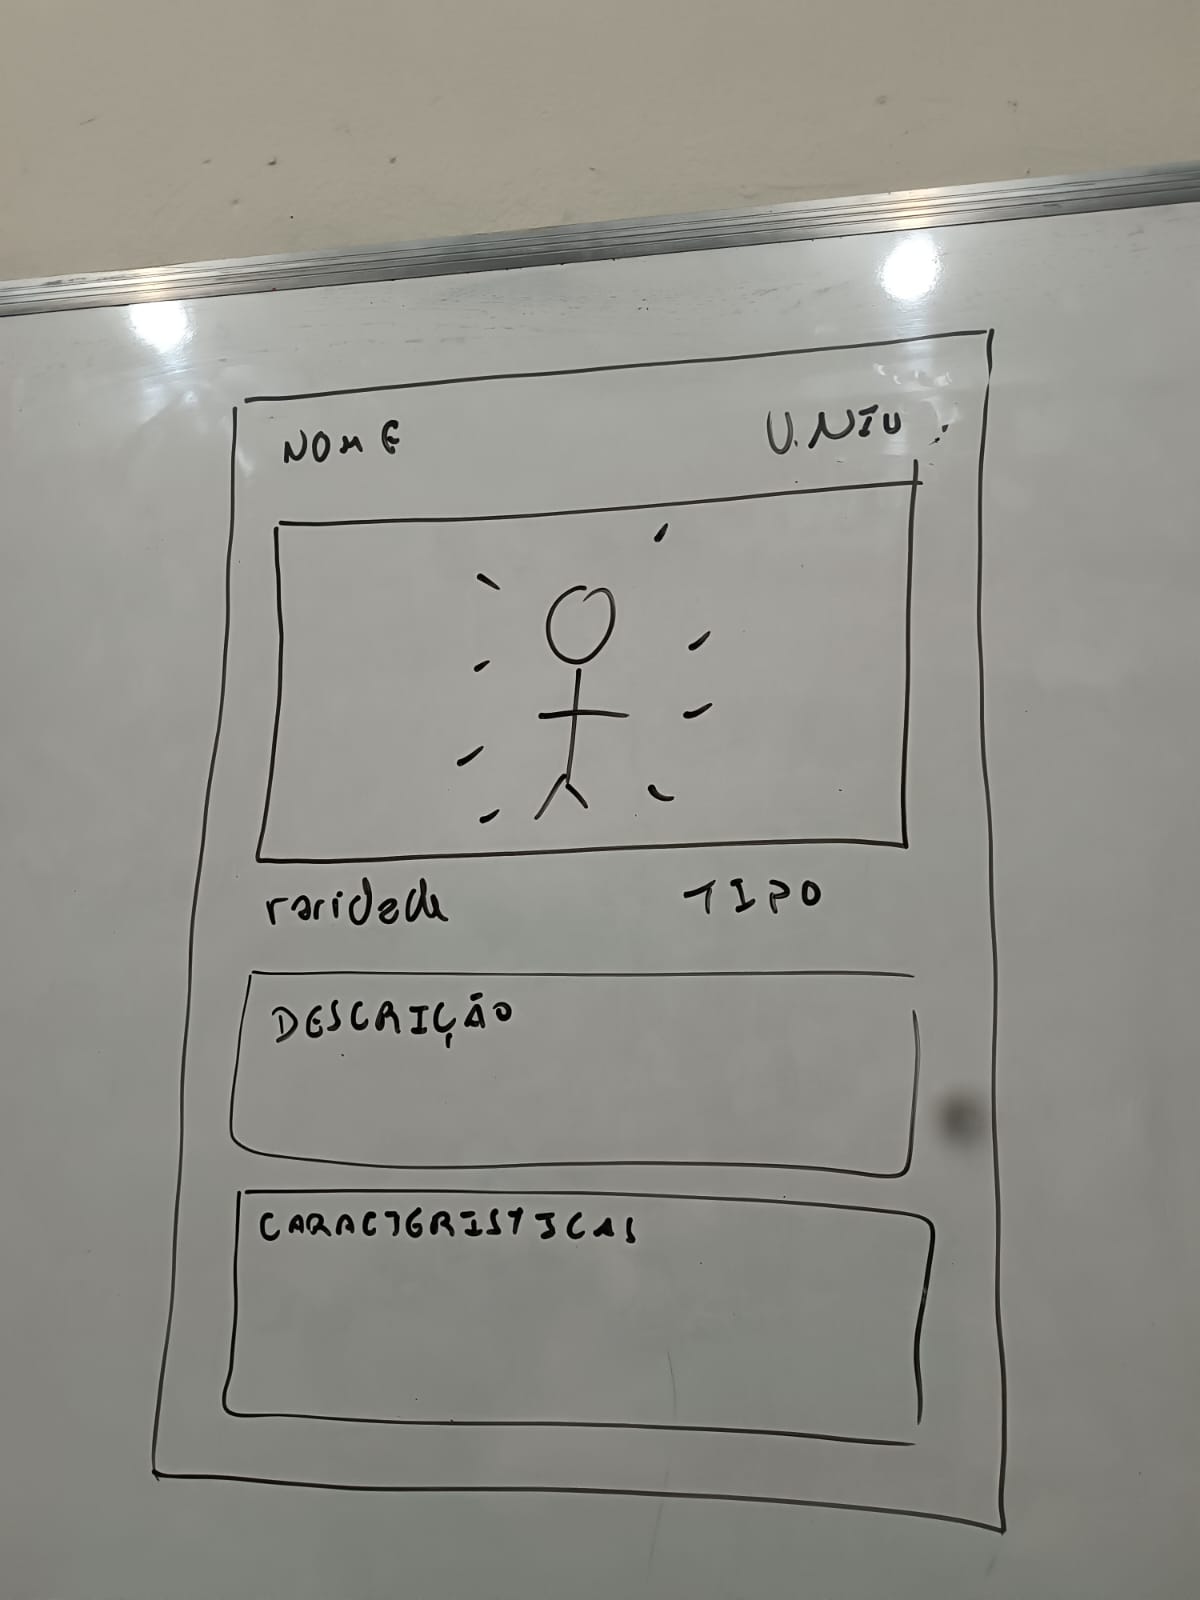 NOME
U. NIU
raridade
TIPO
DESCRIÇÃO
CARACTERISTICAS